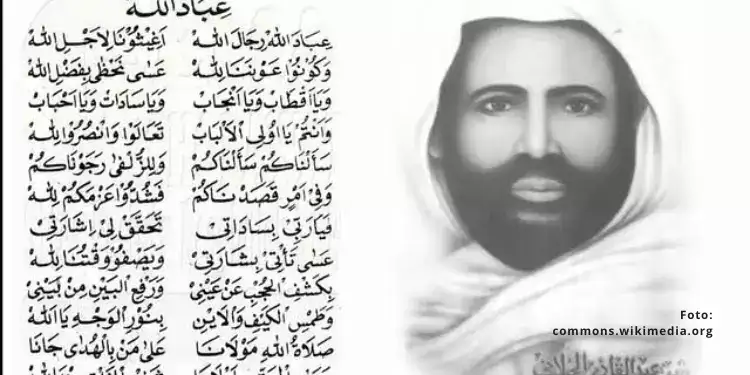 عِبَادَ اللهْ
عِبَادَ اللهْ رِجَالَ اللهْ اَغِيْثُوْنَا لِاَجْلِ اللهْ
وَكُوْنُوْا عَوْنَنَا لِلهْ عَسٰى نَحْظٰى بِفَضْلِ اللهْ
وَيَا اَقْطَابْ وَيَا اَنْجَابْ وَيَا سَادَاتْ وَيَا اَحْبَابْ
وَاَنْتُمْ يَا اُولِى الْاَلْبَابْ تَعَالَوْا وَانْصُرُوْا لِلهْ
سَأَلْنَاكُمْ سَأَلْنَاكُمْ وَلِلزُّلْفٰى رَجَوْنَاكُمْ
وَفِيْ اَمْرٍ قَصَدْنَاكُمْ فَشُدُّوْا عَزْمَكُمْ لِلهْ
فَيَارَبِّيْ بِسَادَاتِيْ تَحَقَّقْ لِيْ اِشَارَتِيْ
عَسٰى تَأْتِيْ بِشَارَتِيْ وَيَصْفُوْ وَقْتُنَا لِلهْ
بِكَشْفِ الْحُجْبِ عَنْ عَيْنِيْ وَرَفْعِ الْبَيْنِ مِنْ بَيْنِيْ
وَطَمْسِ الْكَيْفِ وَالْاَيْنِ بِنُوْرِ الْوَجْهِ يَا اَللهْ
صَلَاةُ اللهِ مَوْلَانَا عَلٰى مَنْ بِالْهُدٰى جَانَا
Foto:
commons.wikimedia.org
عبد القادر الجيلاني